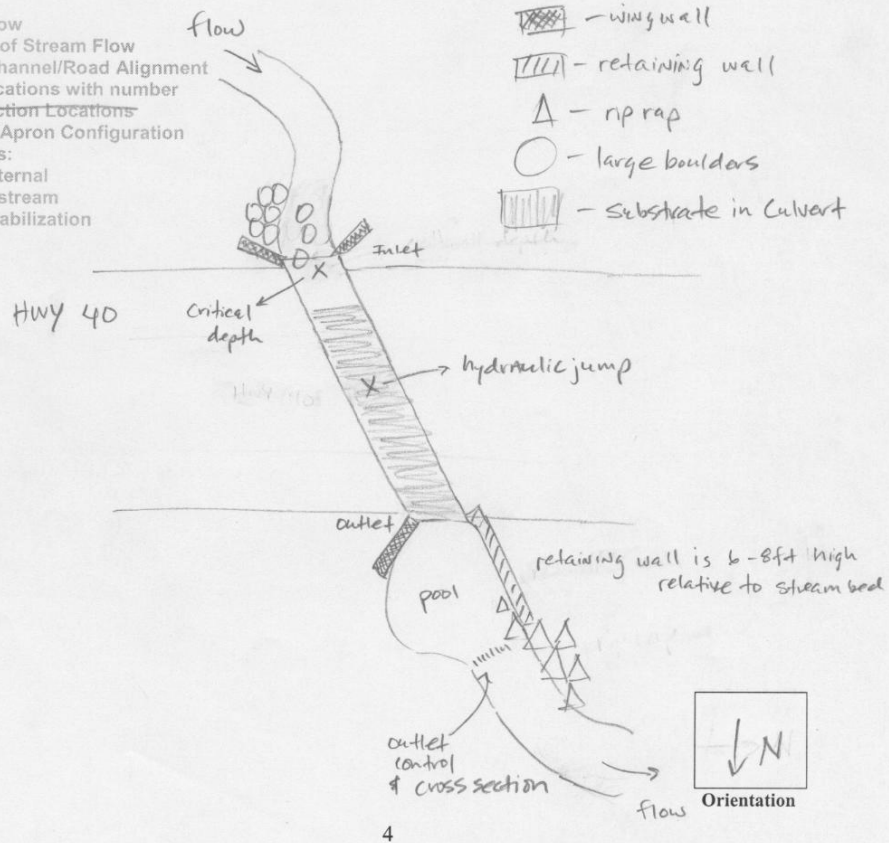 ow
of Stream Flow
hannel/Road Alignment
cations with number
ction Locations
Apron Configuration
s:
ternal
stream
abilization
flow
- wingwall
- retaining wall
- rip rap
- large boulders
- Substrate in Culvert
Inlet
HWY 40
Critical
depth
X
hydraulic jump
X
outlet
retaining wall is 6-8ft high
relative to stream bed
pool
outlet
control
& cross section
flow
N
Orientation
4